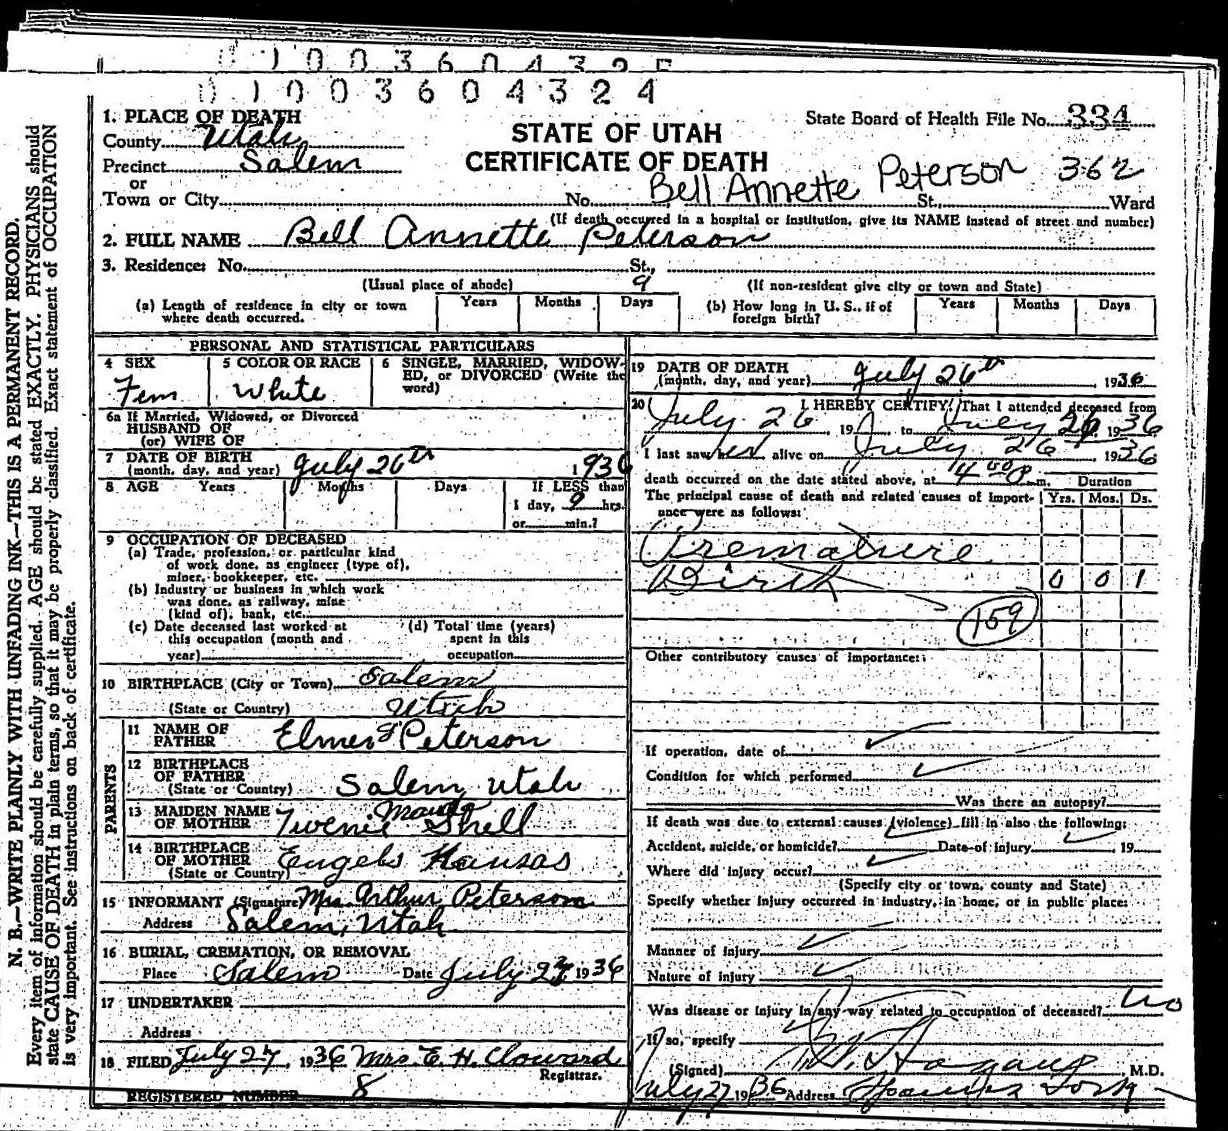 0 1 0 0 3 6 0 4 3 2 5
0 1 0 0 3 6 0 4 3 2 4
1. PLACE OF DEATH
County Utah
Precinct Salem
or
Town or City
STATE OF UTAH
CERTIFICATE OF DEATH
State Board of Health File No. 334
Bell Annette Peterson 362
No. St. Ward
(If death occurred in a hospital or institution, give its NAME instead of street and number)
2. FULL NAME Bell Annette Peterson
3. Residence: No. St.,
(Usual place of abode) (If non-resident give city or town and State)
9
(a) Length of residence in city or town where death occurred. Years Months Days
(b) How long in U. S., if of foreign birth? Years Months Days
PERSONAL AND STATISTICAL PARTICULARS
4 SEX
Fem
5 COLOR OR RACE
White
6 SINGLE, MARRIED, WIDOWED, or DIVORCED (Write the word)
6a If Married, Widowed, or Divorced
HUSBAND OF
(or) WIFE OF
7 DATE OF BIRTH
(month, day, and year) July 26th 1936
8 AGE Years Months Days If LESS than
1 day, 9 hrs.
or min.?
9 OCCUPATION OF DECEASED
(a) Trade, profession, or particular kind
of work done, as engineer (type of),
miner, bookkeeper, etc.
(b) Industry or business in which work
was done, as railway, mine
(kind of), bank, etc.
(c) Date deceased last worked at
this occupation (month and
year)
(d) Total time (years)
spent in this
occupation
10 BIRTHPLACE (City or Town) Salem
(State or Country) Utah
PARENTS
11 NAME OF FATHER Elmer F Peterson
12 BIRTHPLACE OF FATHER
(State or Country) Salem, Utah
13 MAIDEN NAME OF MOTHER Shell
14 BIRTHPLACE OF MOTHER
(State or Country) Kansas
15 INFORMANT (Signature) Mrs. Arthur Peterson
Address Salem, Utah
16 BURIAL, CREMATION, OR REMOVAL
Place Salem Date July 27 1936
17 UNDERTAKER
Address
18 FILED July 27, 1936 Mrs. E. H. Cloward
Registrar.
REGISTERED NUMBER 8
19 DATE OF DEATH
(month, day, and year) July 26th, 1936
20 I HEREBY CERTIFY, That I attended deceased from
July 26, 19 to July 26, 1936
I last saw her alive on July 26 1936
death occurred on the date stated above, at m. Duration
The principal cause of death and related causes of importance were as follows: Yrs. Mos. Ds.
Premature
Birth 0 0 1
159
Other contributory causes of importance:
If operation, date of
Condition for which performed
Was there an autopsy?
If death was due to external causes (violence) fill in also the following:
Accident, suicide, or homicide? Date of injury 19
Where did injury occur?
(Specify city or town, county and State)
Specify whether injury occurred in industry, in home, or in public place:
Manner of injury
Nature of injury
Was disease or injury in any way related to occupation of deceased? no
If so, specify
(Signed) , M.D.
July 27 1936 Address Spanish Fork
N. B.—WRITE PLAINLY WITH UNFADING INK—THIS IS A PERMANENT RECORD.
Every item of information should be carefully supplied. AGE should be stated EXACTLY. PHYSICIANS should
state CAUSE OF DEATH in plain terms, so that it may be properly classified. Exact statement of OCCUPATION
is very important. See instructions on back of certificate.